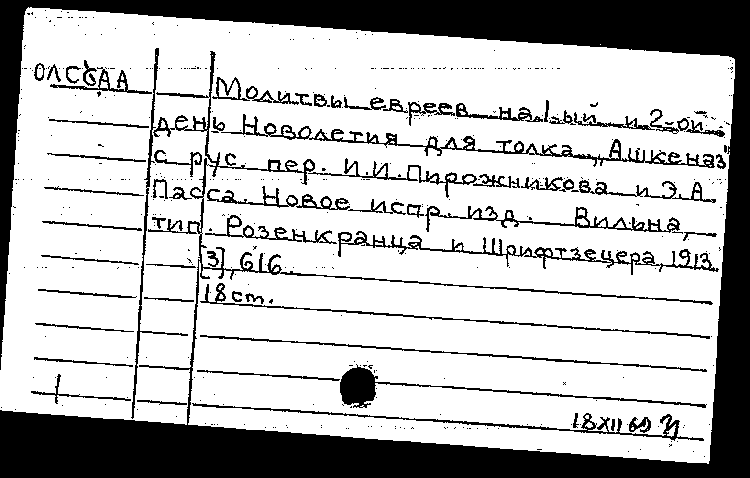 ОЛСАА
Молитвы евреев на 1-ый и 2-ой
день Новолетия для толка „Ашкеназ"
с рус. пер. И.И.Пирожникова и Э.А.
Пасса. Новое испр. изд. Вильна,
тип. Розенкранца и Шрифтзецера, 1913.
[3], 616.
18 cm.
18 XII 69